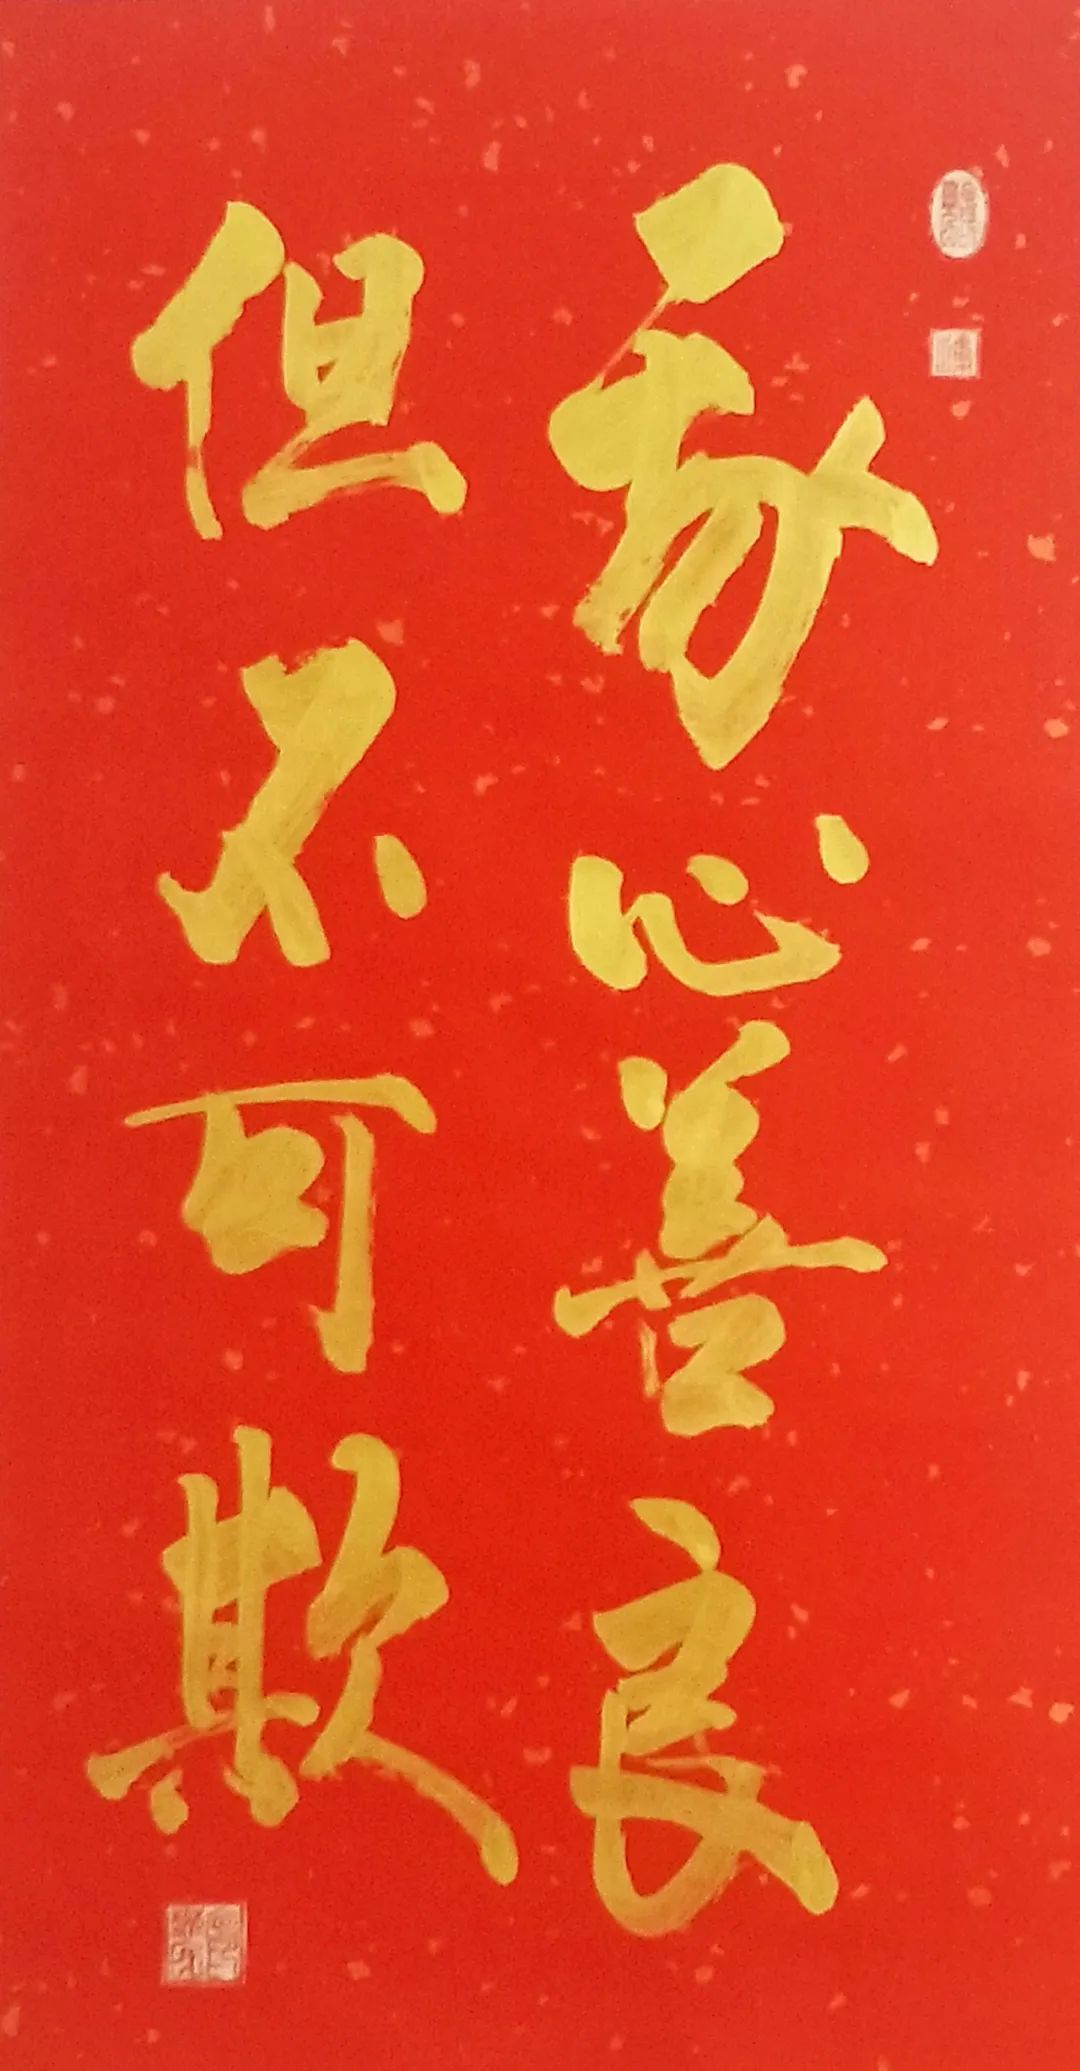 我心善良
但不可欺